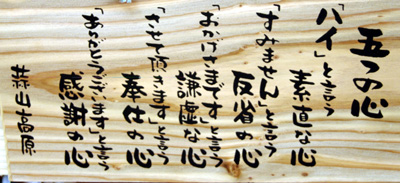 五つの心
「ハイ」と言う
素直な心
「すみません」と言う
反省の心
「おかげさまです」と言う
謙虚な心
「させて頂きます」と言う
奉仕の心
「ありがとうございます」と言う
感謝の心
蒜山高原